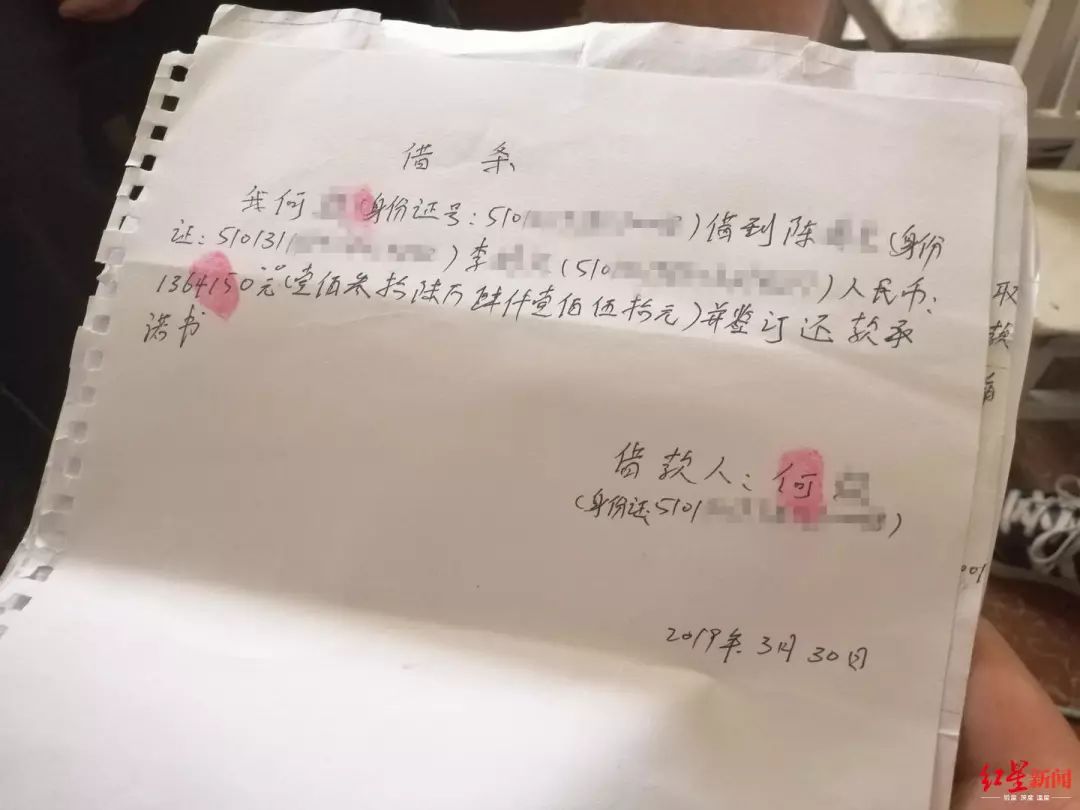 借 条
我何 (身份证号:5101 )借到陈 (身份
证:510131 )李 (510 )人民币:
1364150元(壹佰叁拾陆万肆仟壹佰伍拾元)并鉴订还款承
诺书
借款人:何
(身份证5101 )
2019年3月30日
取
款
红星新闻
锐度 深度 温度